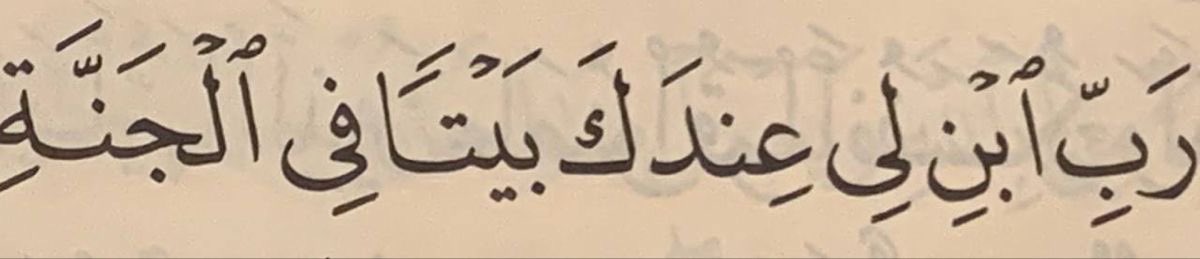 رَبِّ ٱبْنِ لِي عِندَكَ بَيْتًا فِي ٱلْجَنَّةِ